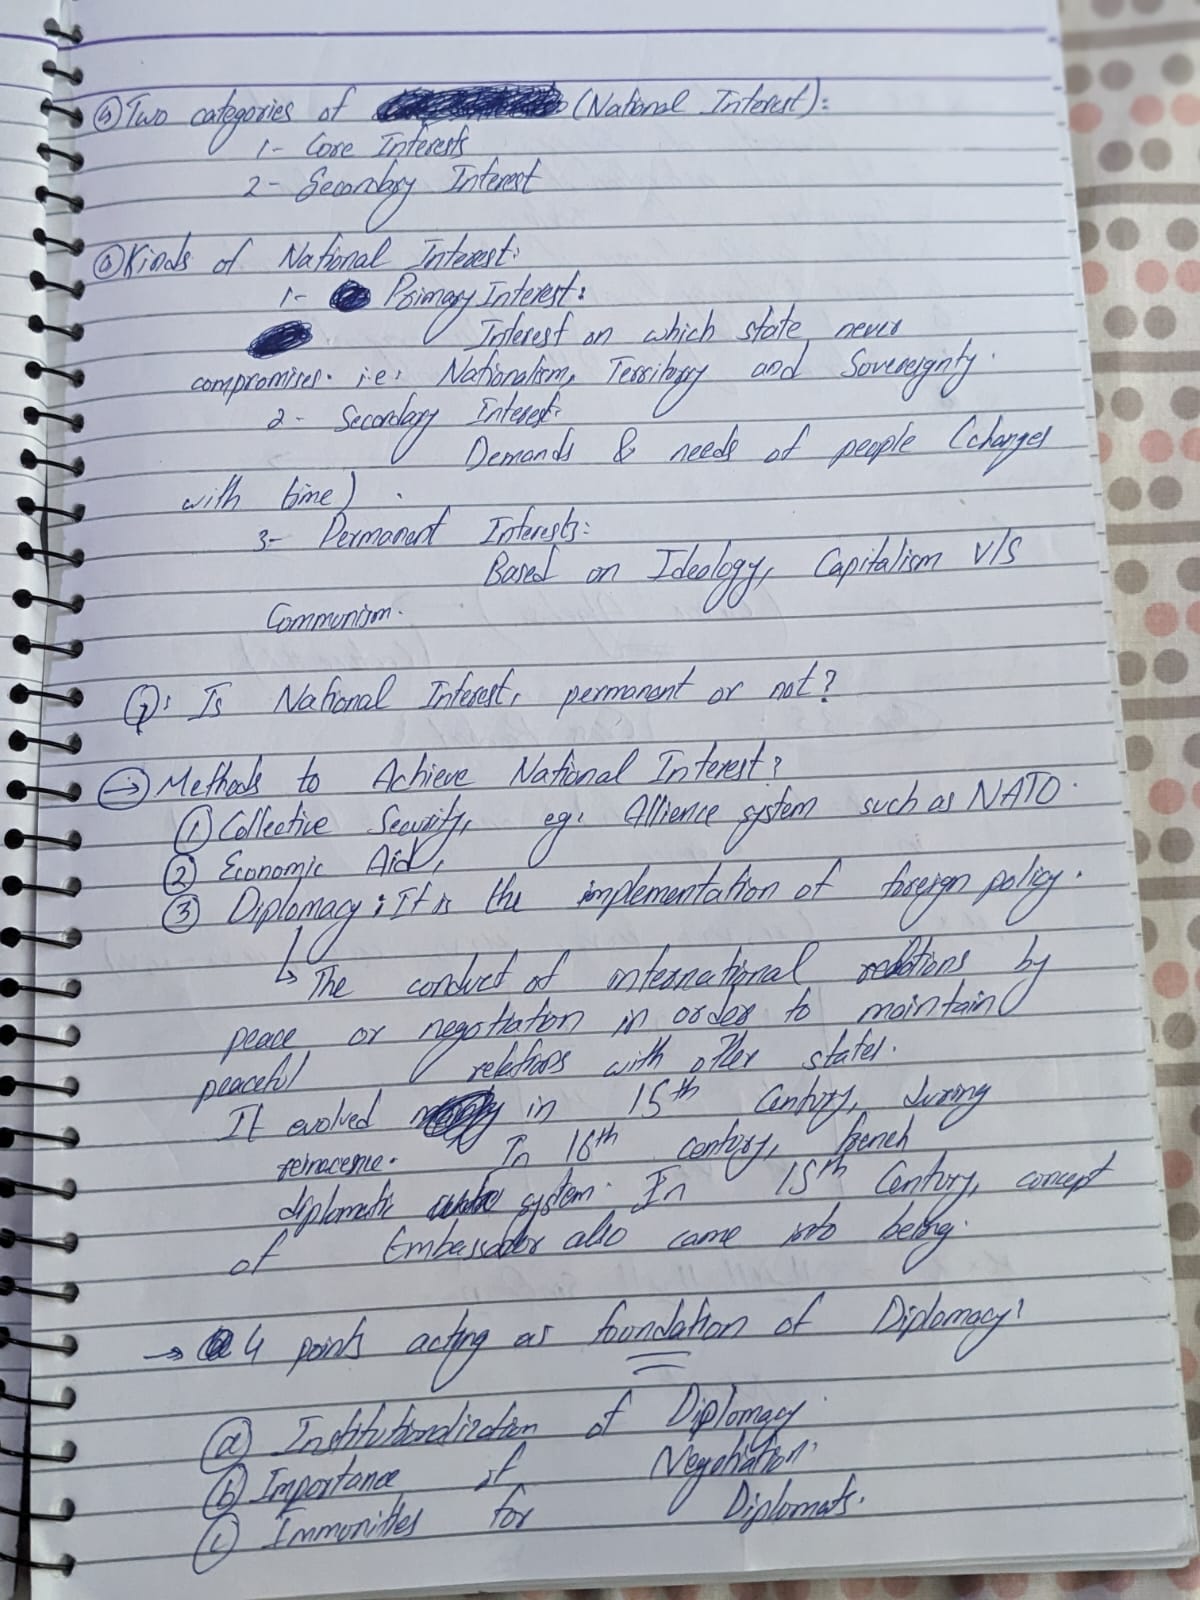 Two categories of (National Interest):
1- Core Interests
2- Secondary Interest
Kinds of National Interest:
1- Primary Interest:
Interest on which state never
compromises. i.e: Nationalism, Territory and Sovereignty.
2- Secondary Interest:
Demands & needs of people (changes
with time).
3- Permanant Interests:
Based on Ideology, Capitalism V/S
Communism.
Q: Is National Interest, permanant or not?
→ Methods to Achieve National Interest?
① Collective Security, eg: Allience system such as NATO.
② Economic Aid,
③ Diplomacy: It is the implementation of foreign policy.
↳ The conduct of international relations by
peace or negotiation in order to maintain
peaceful relations with other states.
It evolved in 15th Century, during
reinacence. In 16th century, french
diplomatic system. In 15th Century, concept
of Embessador also came into being.
→ 4 points acting as foundation of Diplomacy:
(a) Institutionalization of Diplomacy.
(b) Importance of Negotiation.
(c) Immunities for Diplomats.